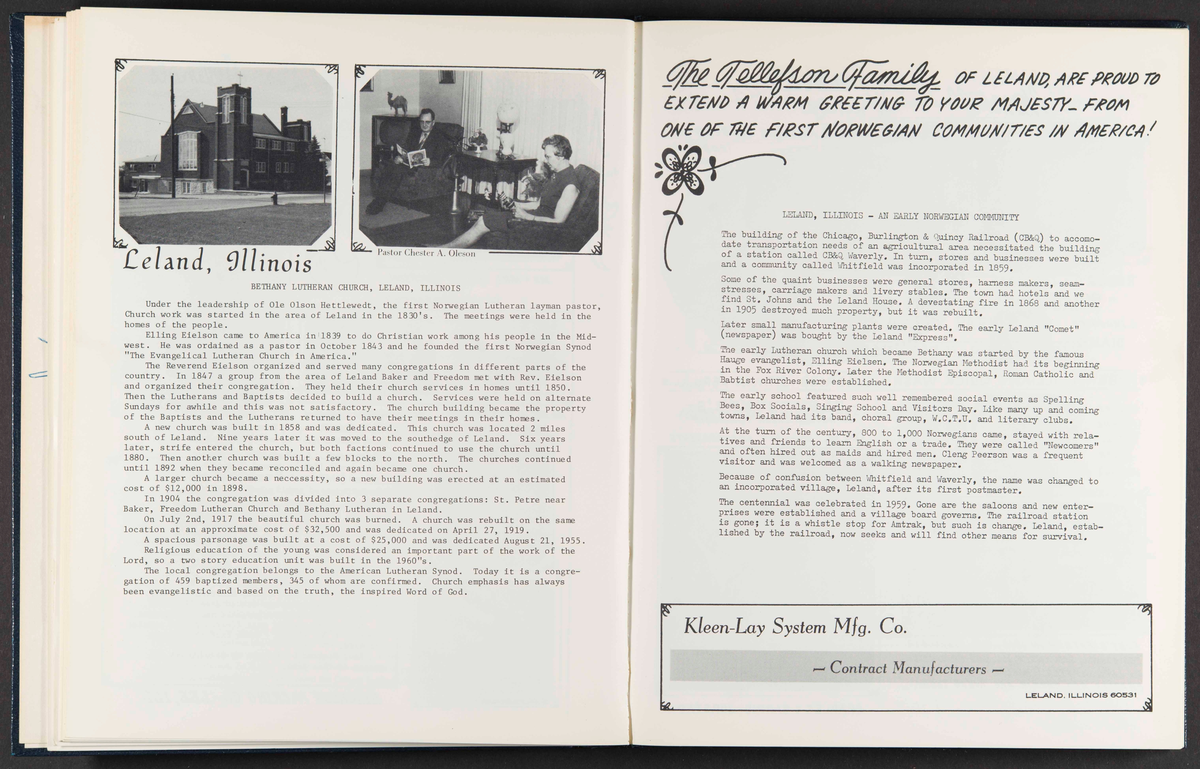 Pastor Chester A. Oleson
Leland, Illinois
BETHANY LUTHERAN CHURCH, LELAND, ILLINOIS
Under the leadership of Ole Olson Hettletvedt, the first Norwegian Lutheran layman pastor,
Church work was started in the area of Leland in the 1830's. The meetings were held in the
homes of the people.
Elling Eielson came to America in 1839 to do Christian work among his people in the Mid-
west. He was ordained as a pastor in October 1843 and he founded the first Norwegian Synod
"The Evangelical Lutheran Church in America."
The Reverend Eielson organized and served many congregations in different parts of the
country. In 1847 a group from the area of Leland Baker and Freedom met with Rev. Eielson
and organized their congregation. They held their church services in homes until 1850.
Then the Lutherans and Baptists decided to build a church. Services were held on alternate
Sundays for awhile and this was not satisfactory. The church building became the property
of the Baptists and the Lutherans returned to have their meetings in their homes.
A new church was built in 1858 and was dedicated. This church was located 2 miles
south of Leland. Nine years later it was moved to the southedge of Leland. Six years
later, strife entered the church, but both factions continued to use the church until
1880. Then another church was built a few blocks to the north. The churches continued
until 1892 when they became reconciled and again became one church.
A larger church became a neccessity, so a new building was erected at an estimated
cost of $12,000 in 1898.
In 1904 the congregation was divided into 3 separate congregations: St. Petre near
Baker, Freedom Lutheran Church and Bethany Lutheran in Leland.
On July 2nd, 1917 the beautiful church was burned. A church was rebuilt on the same
location at an approximate cost of $32,500 and was dedicated on April 27, 1919.
A spacious parsonage was built at a cost of $25,000 and was dedicated August 21, 1955.
Religious education of the young was considered an important part of the work of the
Lord, so a two story education unit was built in the 1960"s.
The local congregation belongs to the American Lutheran Synod. Today it is a congre-
gation of 459 baptized members, 345 of whom are confirmed. Church emphasis has always
been evangelistic and based on the truth, the inspired Word of God.
The Tellefson Family OF LELAND, ARE PROUD TO
EXTEND A WARM GREETING TO YOUR MAJESTY_ FROM
ONE OF THE FIRST NORWEGIAN COMMUNITIES IN AMERICA!
LELAND, ILLINOIS - AN EARLY NORWEGIAN COMMUNITY
The building of the Chicago, Burlington & Quincy Railroad (CB&Q) to accomo-
date transportation needs of an agricultural area necessitated the building
of a station called CB&Q Waverly. In turn, stores and businesses were built
and a community called Whitfield was incorporated in 1859.
Some of the quaint businesses were general stores, harness makers, seam-
stresses, carriage makers and livery stables. The town had hotels and we
find St. Johns and the Leland House. A devestating fire in 1868 and another
in 1905 destroyed much property, but it was rebuilt.
Later small manufacturing plants were created. The early Leland "Comet"
(newspaper) was bought by the Leland "Express".
The early Lutheran church which became Bethany was started by the famous
Hauge evangelist, Elling Eielsen. The Norwegian Methodist had its beginning
in the Fox River Colony. Later the Methodist Episcopal, Roman Catholic and
Babtist churches were established.
The early school featured such well remembered social events as Spelling
Bees, Box Socials, Singing School and Visitors Day. Like many up and coming
towns, Leland had its band, choral group, W.C.T.U. and literary clubs.
At the turn of the century, 800 to 1,000 Norwegians came, stayed with rela-
tives and friends to learn English or a trade. They were called "Newcomers"
and often hired out as maids and hired men. Cleng Peerson was a frequent
visitor and was welcomed as a walking newspaper.
Because of confusion between Whitfield and Waverly, the name was changed to
an incorporated village, Leland, after its first postmaster.
The centennial was celebrated in 1959. Gone are the saloons and new enter-
prises were established and a village board governs. The railroad station
is gone; it is a whistle stop for Amtrak, but such is change. Leland, estab-
lished by the railroad, now seeks and will find other means for survival.
Kleen-Lay System Mfg. Co.
— Contract Manufacturers —
LELAND, ILLINOIS 60531